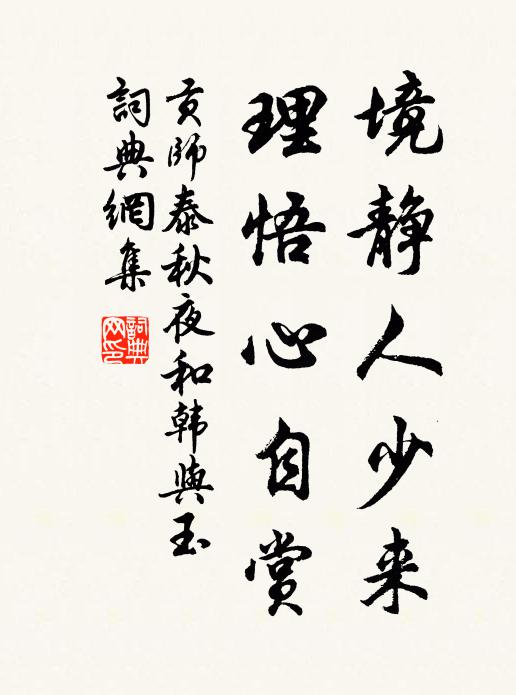 境静人少来
理悟心自赏
贡师泰秋夜和韩與玉
詞典網集
詞典网印